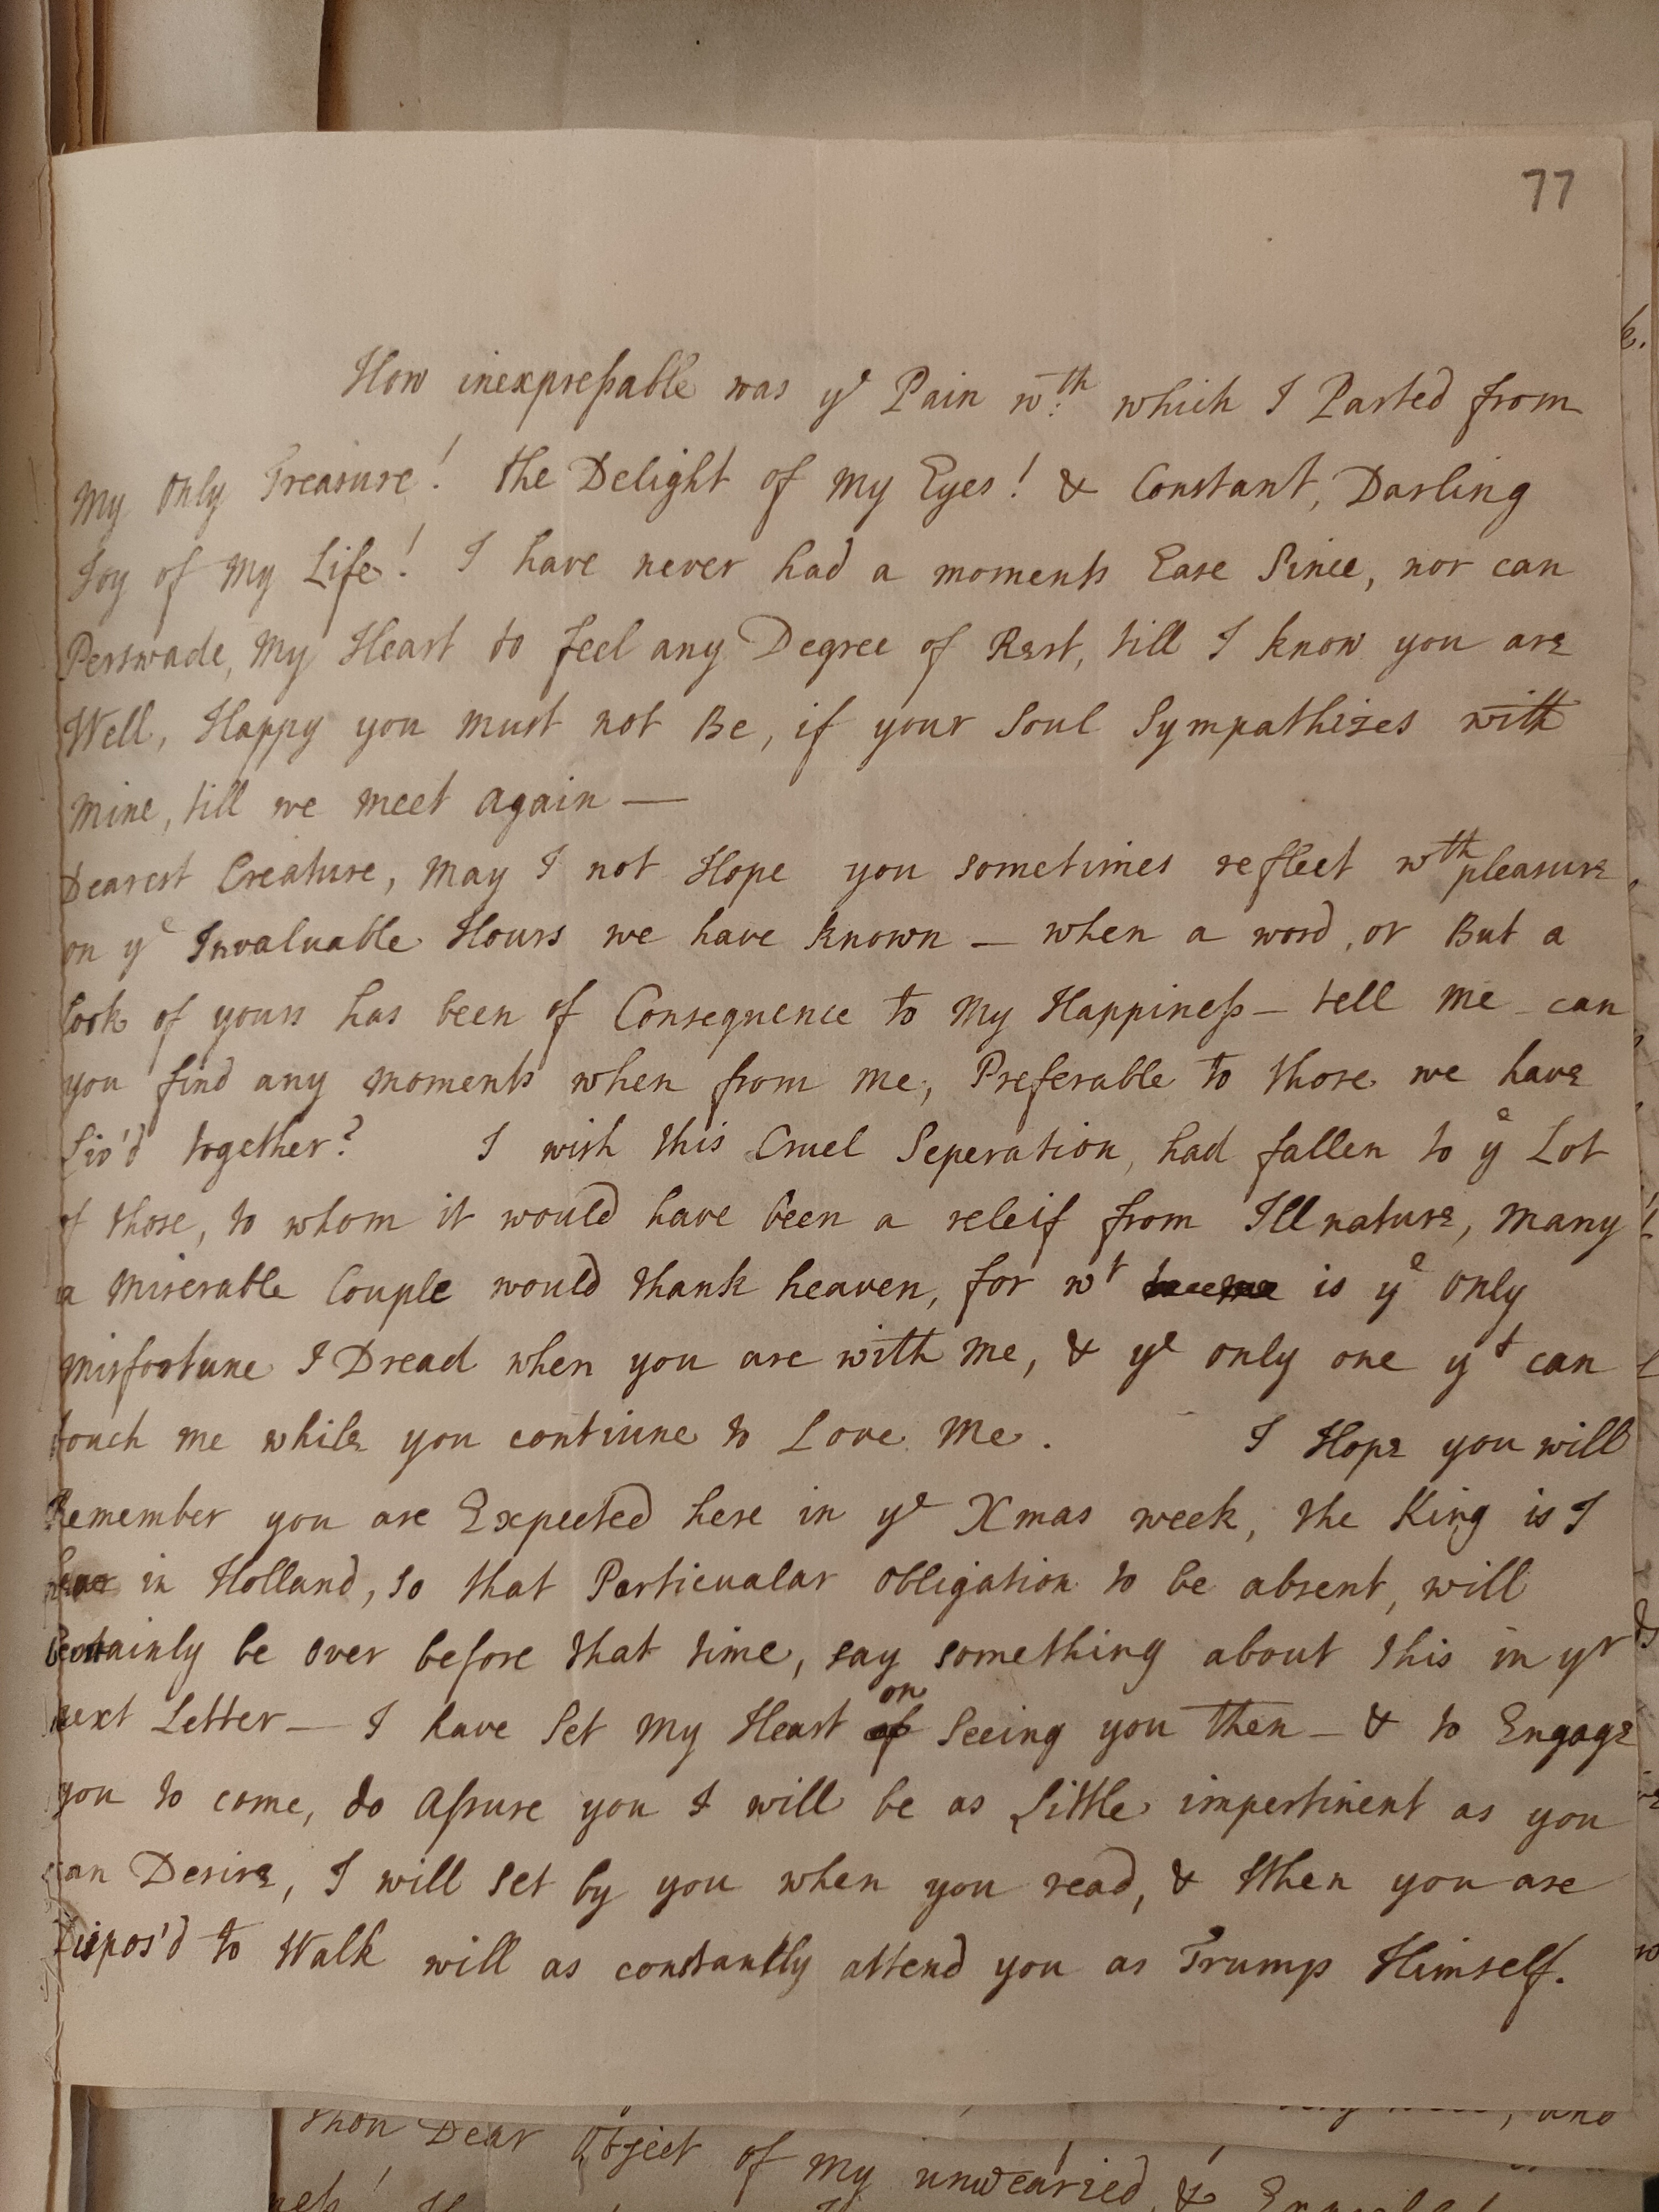 77
How inexpreſsable was yᵉ Pain wᵗʰ which I Parted from
My Only Treasure! the Delight of My Eyes! & Constant, Darling
Joy of My Life! I have never had a moments Ease Since, nor can
Perswade, My Heart to feel any Degree of Rest, till I know you are
Well, Happy you must not Be, if your Soul Sympathizes with
Mine, till we meet again —
Dearest Creature, May I not Hope you sometimes reflect wᵗʰ pleasure
on yᵉ Invaluable Hours we have known — when a word, or But a
look of yours has been of Consequence to My Happineſs — tell me can
you find any moments when from me, Preferable to those we have
Liv'd together? I wish this Cruel Seperation, had fallen to yᵉ Lot
of those, to whom it would have been a releif from Ill nature, Many
a Miserable Couple would thank heaven, for wᵗ is yᵉ Only
Misfortune I Dread when you are with Me, & yᵉ only one yᵗ can
touch me while you continue to Love Me. I Hope you will
Remember you are Expected here in yᵉ Xmas week, the King is I
hear in Holland, so that Particualar obligation to be absent, will
Certainly be over before that time, say something about this in yʳ
next Letter — I have Set My Heart on Seeing you then — & to Engage
you to come, do Aſsure you I will be as Little impertinent as you
can Desire, I will Set by you when you read, & When you are
Dispos'd to Walk will as constantly attend you as Trump Himself.
thou Dear Object of My unwearied, &